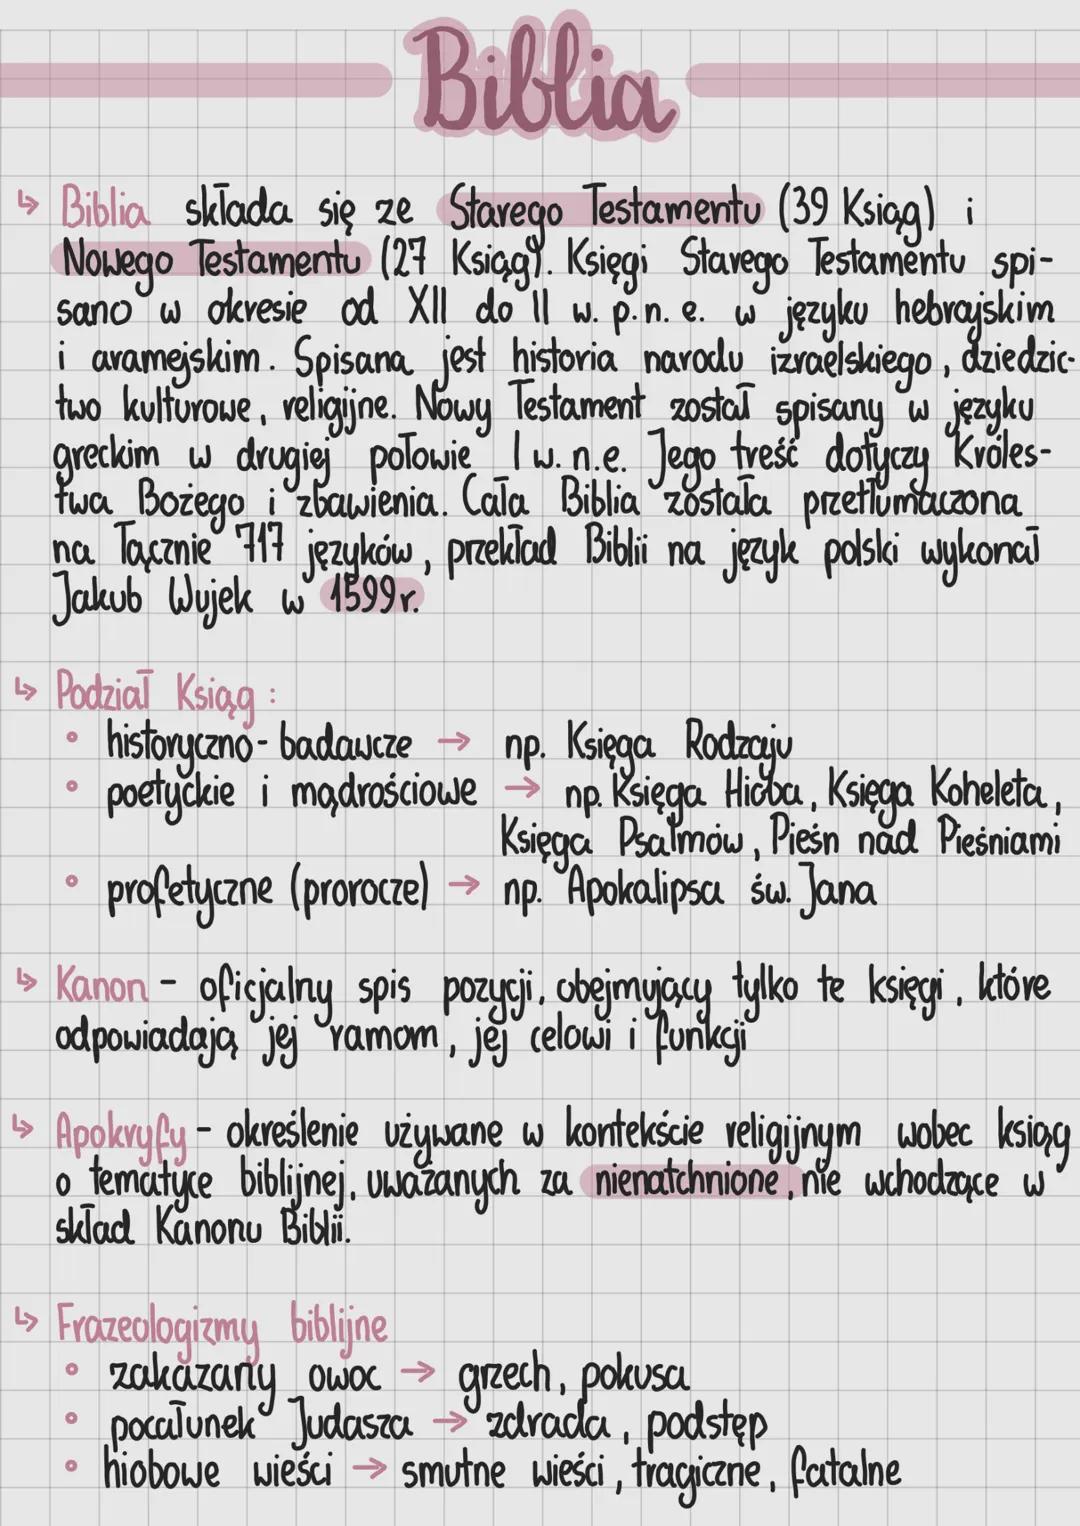 Biblia
↳ Biblia składa się ze Starego Testamentu (39 Ksiąg) i
Nowego Testamentu (27 Ksiąg). Księgi Starego Testamentu spi-
sano w okresie od XII do II w. p. n. e. w języku hebrajskim
i aramejskim. Spisana jest historia narodu izraelskiego, dziedzic-
two kulturowe, religijne. Nowy Testament został spisany w języku
greckim w drugiej połowie I w. n. e. Jego treść dotyczy Króles-
twa Bożego i zbawienia. Cała Biblia została przetłumaczona
na łącznie 717 języków, przekład Biblii na język polski wykonał
Jakub Wujek w 1599r.
↳ Podział Ksiąg:
• historyczno-badawcze → np. Księga Rodzaju
• poetyckie i mądrościowe → np. Księga Hioba, Księga Koheleta,
Księga Psalmów, Pieśń nad Pieśniami
• profetyczne (prorocze) → np. Apokalipsa św. Jana
↳ Kanon - oficjalny spis pozycji, obejmujący tylko te księgi, które
odpowiadają jej ramom, jej celowi i funkcji
↳ Apokryfy - określenie używane w kontekście religijnym wobec ksiąg
o tematyce biblijnej, uważanych za nienatchnione, nie wchodzące w
skład Kanonu Biblii.
↳ Frazeologizmy biblijne
• zakazany owoc → grzech, pokusa
• pocałunek Judasza → zdrada, podstęp
• hiobowe wieści → smutne wieści, tragiczne, fatalne